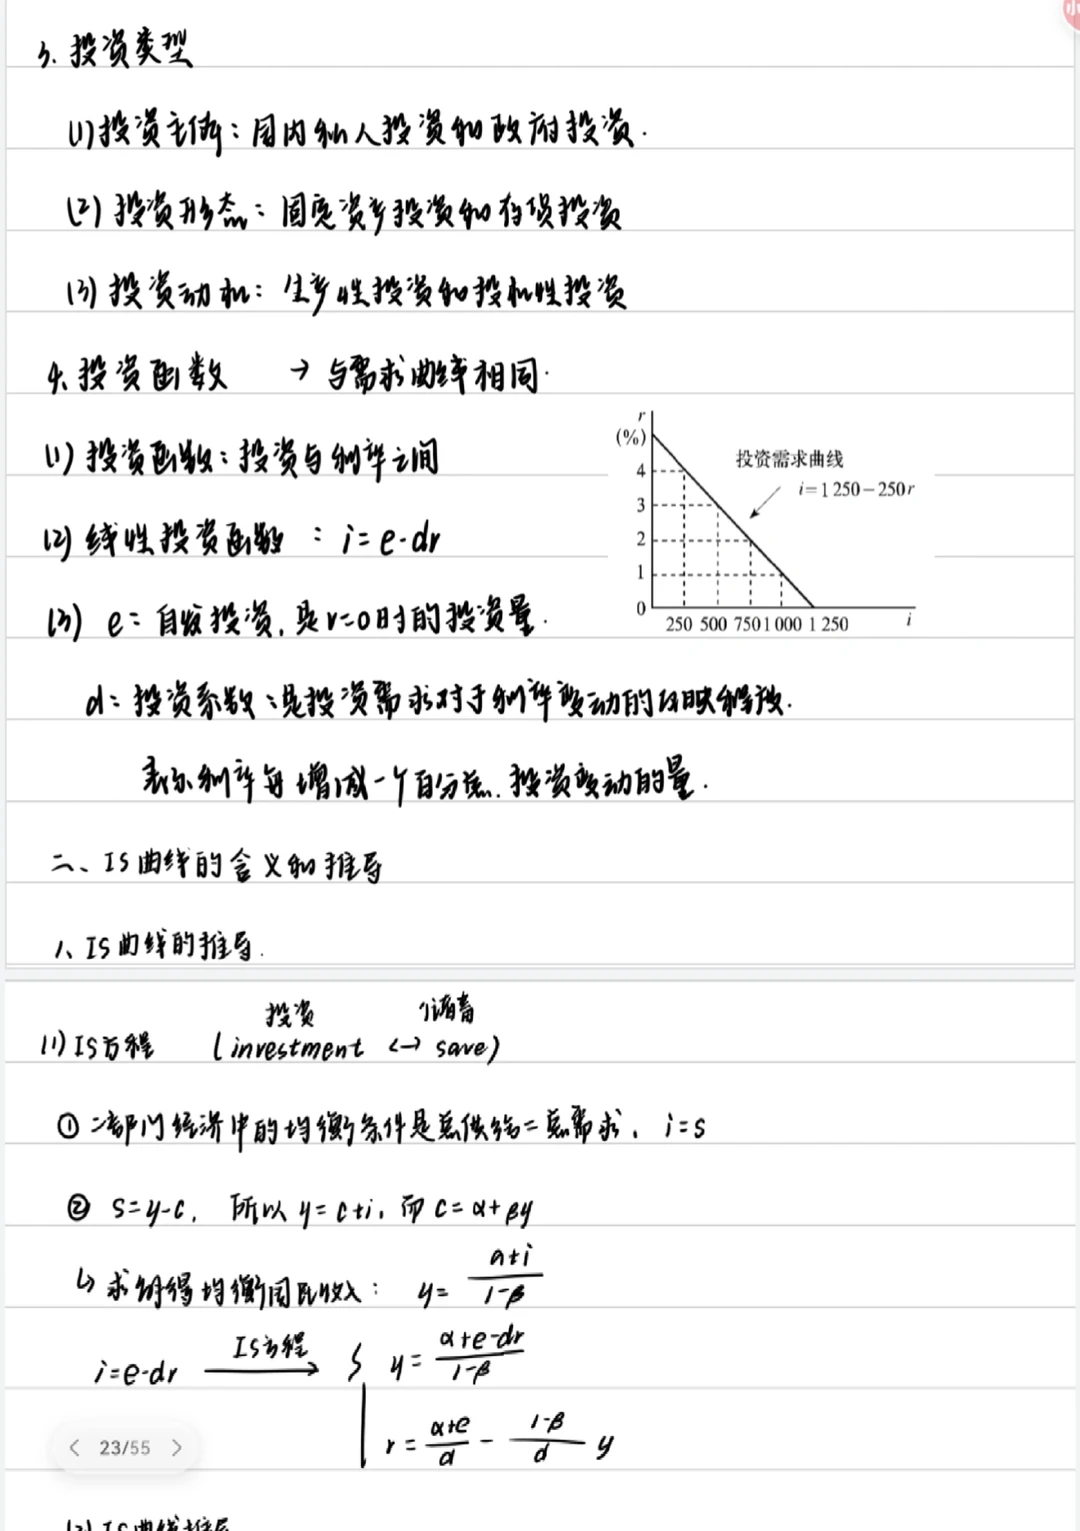 3. 投资类型
(1) 投资主体：国内私人投资和政府投资.
(2) 投资形态：固定资产投资和存货投资
(3) 投资动机：生产性投资和投机性投资
4. 投资函数 → 与需求曲线相同.
(1) 投资函数：投资与利率之间
(2) 线性投资函数：i = e-dr
(3) e：自发投资, 是r=0时的投资量.
d：投资系数：是投资需求对于利率变动的反映程度.
表示利率每增减一个百分点, 投资变动的量.
r
(%)
4
3
2
1
0
投资需求曲线
i=1 250-250r
250 500 750 1 000 1 250
i
二、IS曲线的含义和推导
1、IS曲线的推导.
投资 储蓄
(1) IS方程 (investment ↔ save)
① 二部门经济中的均衡条件是总供给=总需求, i=s
② s=y-c, 所以 y=c+i, 而 c=α+βy
↳ 求解得均衡国民收入： y= (α+i)/(1-β)
i=e-dr IS方程→ { y= (α+e-dr)/(1-β)
r= (α+e)/d - (1-β)/d y
23/55
(2) IS曲线推导
小